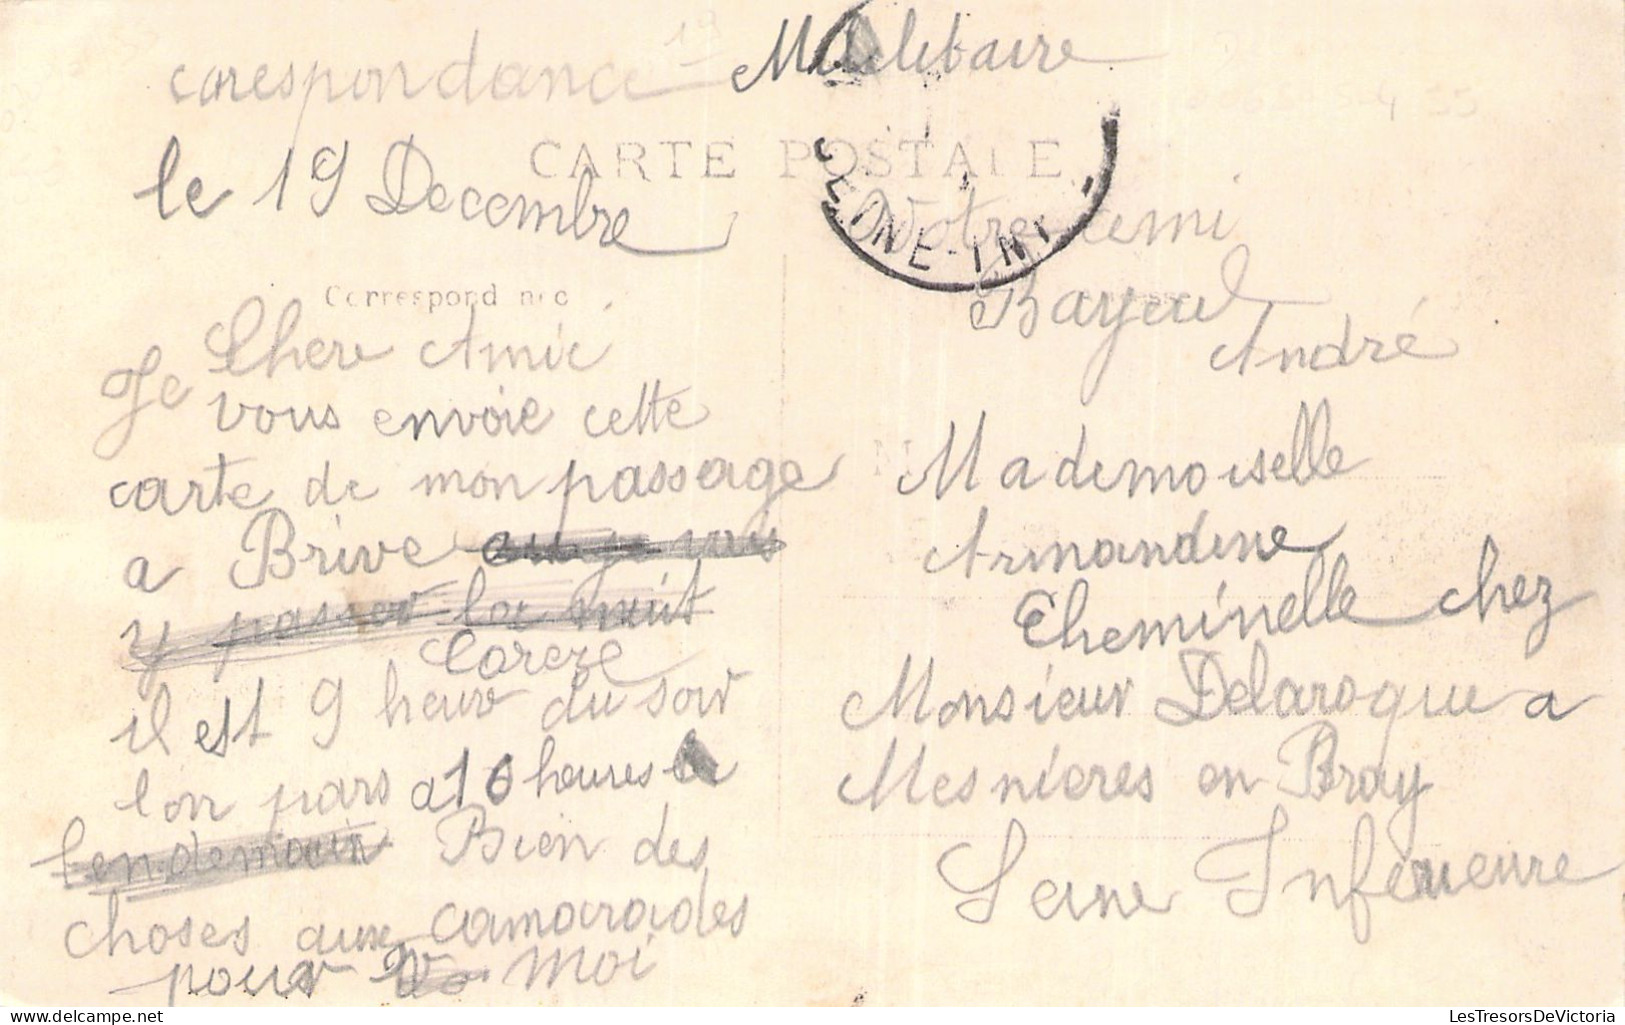 corespondance Militaire
le 19 Decembre
CARTE POSTALE
Correspondance
Chere Amie
Je vous envoie cette
carte de mon passage
a Brive
y passer la nuit
Coreze
il est 9 heur du soir
l'on pars a 10 heures
lendemain Bien des
choses aux camarades
pour moi
SEINE-INF
Votre ami
Bayeul
André
Mademoiselle
Armandine
Cheminelle chez
Monsieur Delaroque a
Mesnieres en Bray
Seine Inferieure
LesTresorsDeVictoria